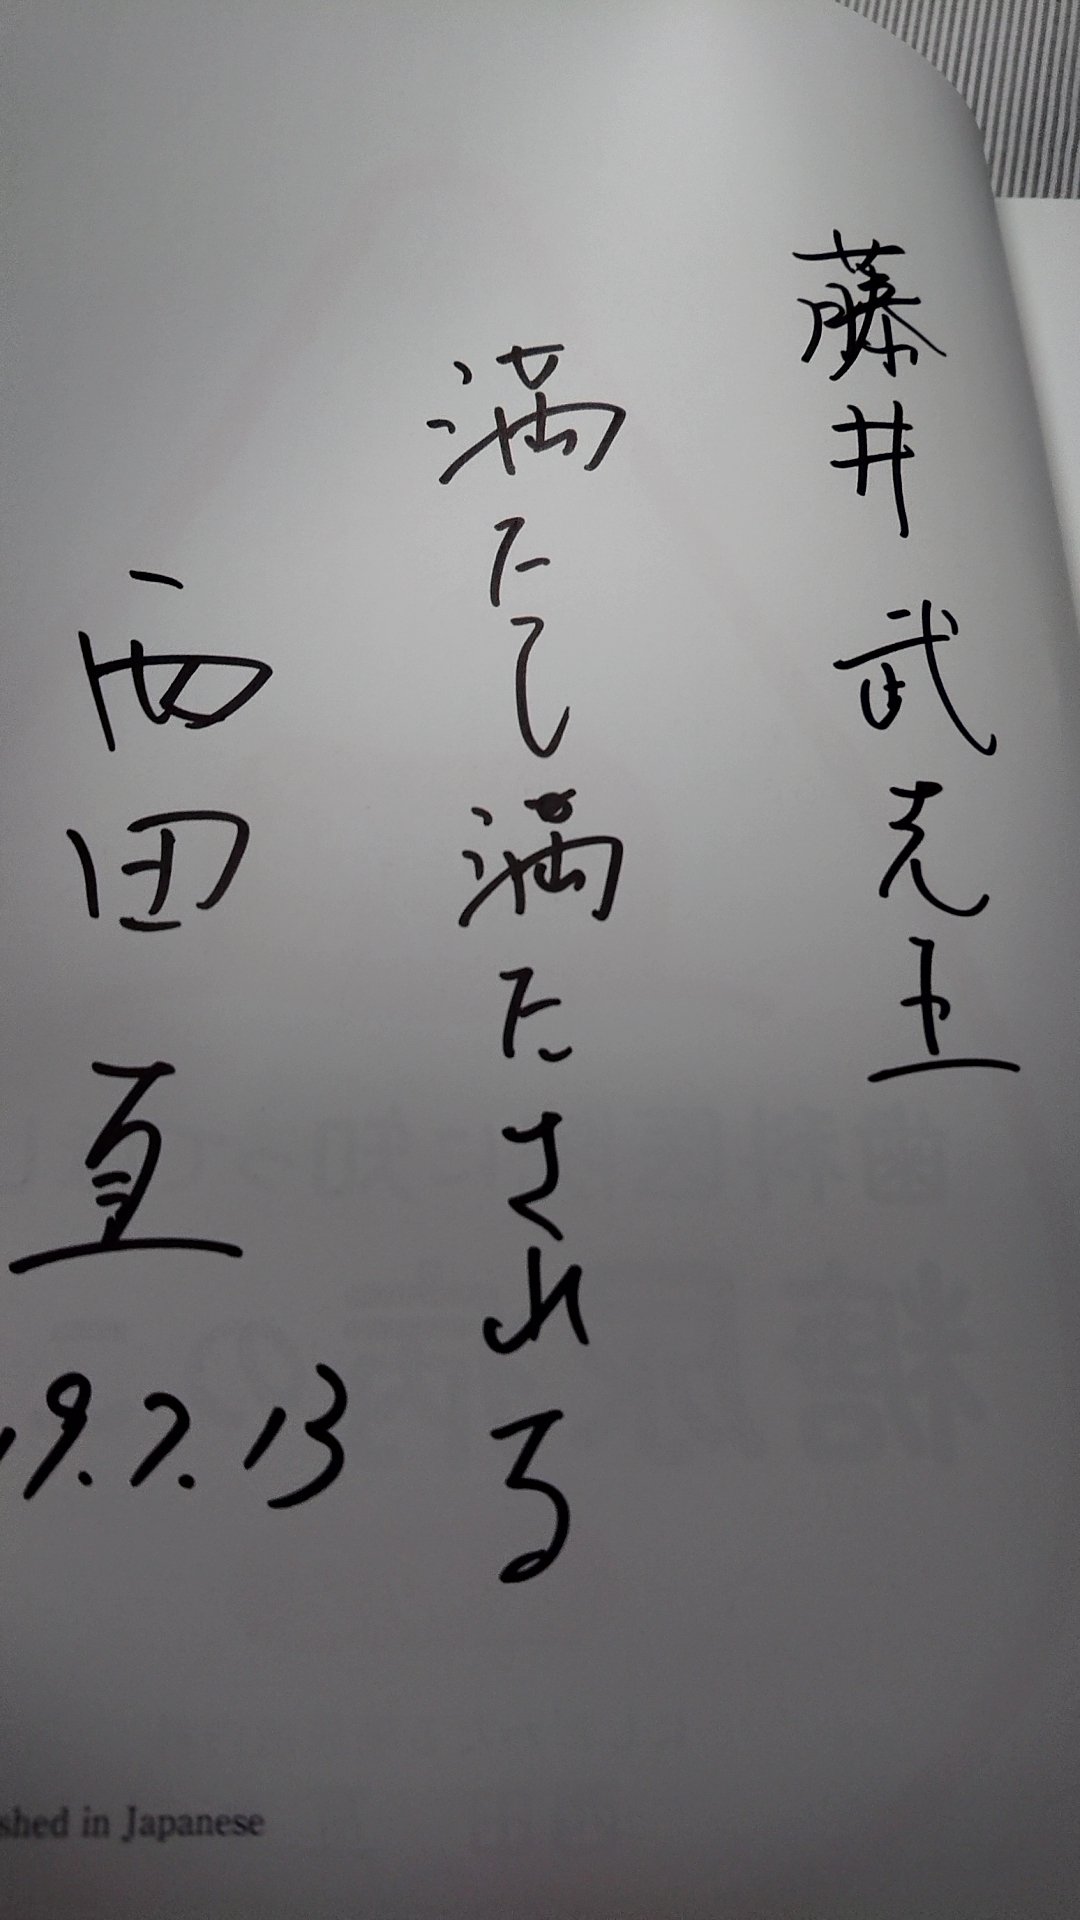 藤井武克士
満たし満たされる
西田亘
19.7.13
shed in Japanese